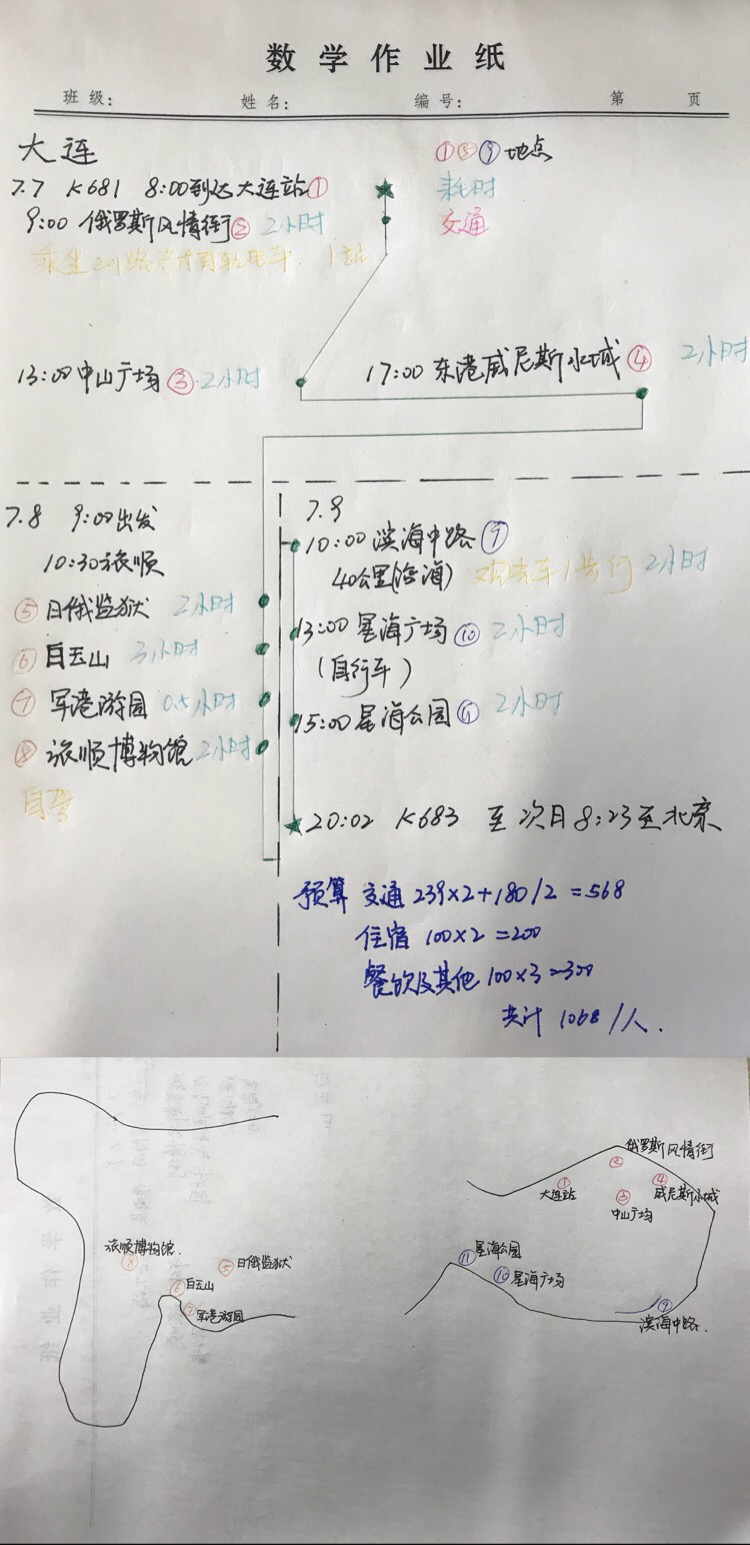 数学作业纸
班级: 姓名: 编号: 第 页
大连
①⑤⑨地点
耗时
交通
7.7 K681 8:00到达大连站①
9:00 俄罗斯风情街② 2小时
乘坐201路 1站
13:00 中山广场③ 2小时
17:00 东港威尼斯水城④ 2小时
7.8 9:00出发
10:30旅顺
⑤日俄监狱 2小时
⑥白玉山 3小时
⑦军港游园 0.5小时
⑧旅顺博物馆 2小时
自驾
7.9
10:00 滨海中路⑨
40公里(沿海) 步行 2小时
13:00 星海广场⑩ 2小时
(自行车)
15:00 星海公园⑪ 2小时
20:02 K683 至次日8:23至北京
预算 交通 239×2+180/2=568
住宿 100×2=200
餐饮及其他 100×3=300
共计 1068/人.
旅顺博物馆.
⑧
⑤日俄监狱
⑥白玉山
⑦军港游园
俄罗斯风情街
②
①
大连站
④
威尼斯水城
③
中山广场
⑪星海公园
⑩星海广场
⑨
滨海中路.